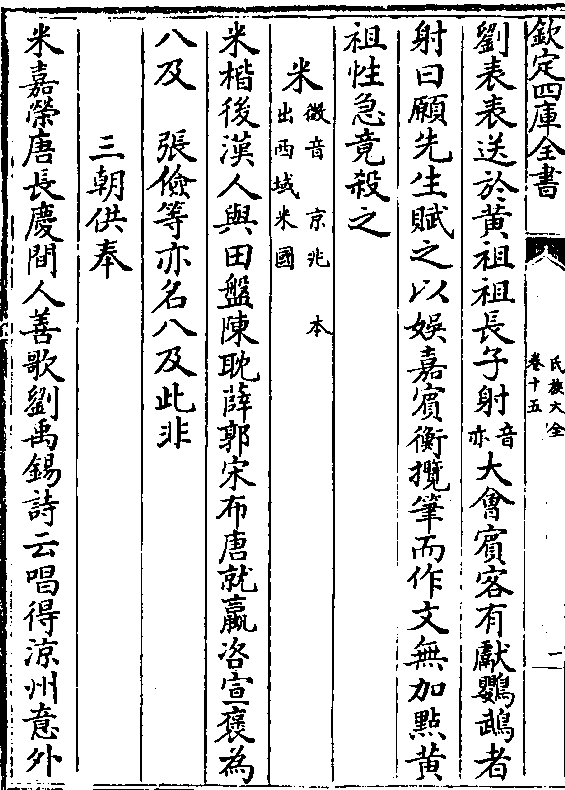 欽定四庫全書
氏族大全
卷十五
二
劉表表送於黄祖祖長子射音亦大會賓客有獻鸚鵡者
射曰願先生賦之以娯嘉賓衡攬筆而作文無加點黄
祖性急竟殺之
米徴音 京兆 本出西域米國
米楷後漢人與田盤陳耽薛郭宋布唐就嬴咨宣褒為
八及 張儉等亦名八及此非
三朝供奉
米嘉榮唐長慶間人善歌劉禹錫詩云唱得涼州意外